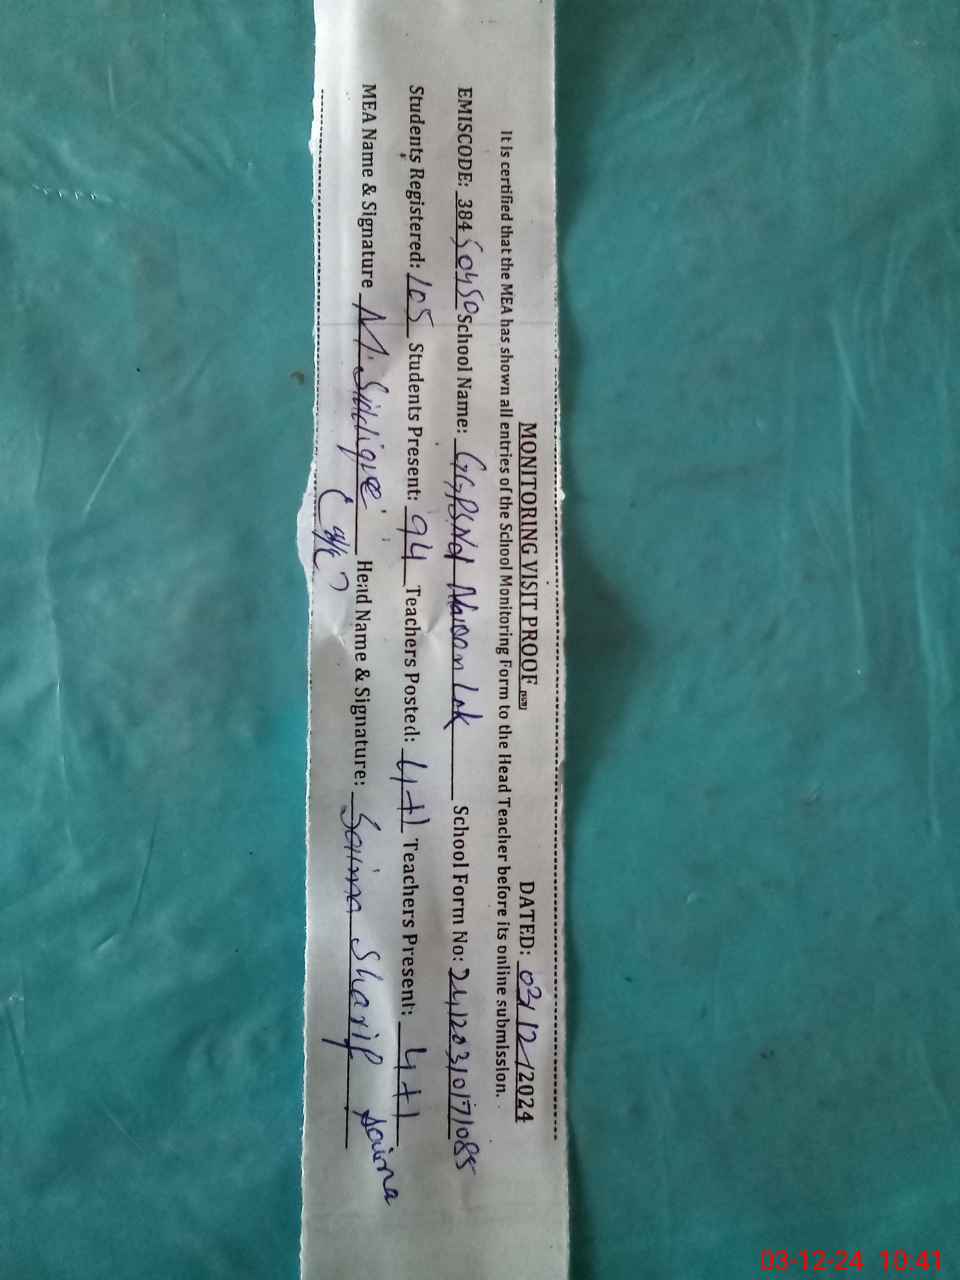 MONITORING VISIT PROOF DATED: 03/12/2024
It is certified that the MEA has shown all entries of the School Monitoring Form to the Head Teacher before its online submission.
EMISCODE: 38450450 School Name: GGPS Nai Lok School Form No:
Students Registered: 105 Students Present: 94 Teachers Posted: 4+1 Teachers Present: 4+1
MEA Name & Signature M. Siddique Head Name & Signature: Saima Sharif Saima
03-12-24 10:41